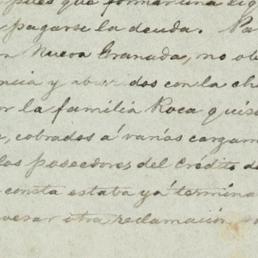 pues que formar una liq
pagarse la deuda. Pa
n Nueva Granada, no ob
ncia y dos con la ch
or la familia Roca quiso
, cobrados á varios cargam
los poseedores del crédito de
consta estaba yá termina
over otra reclamación